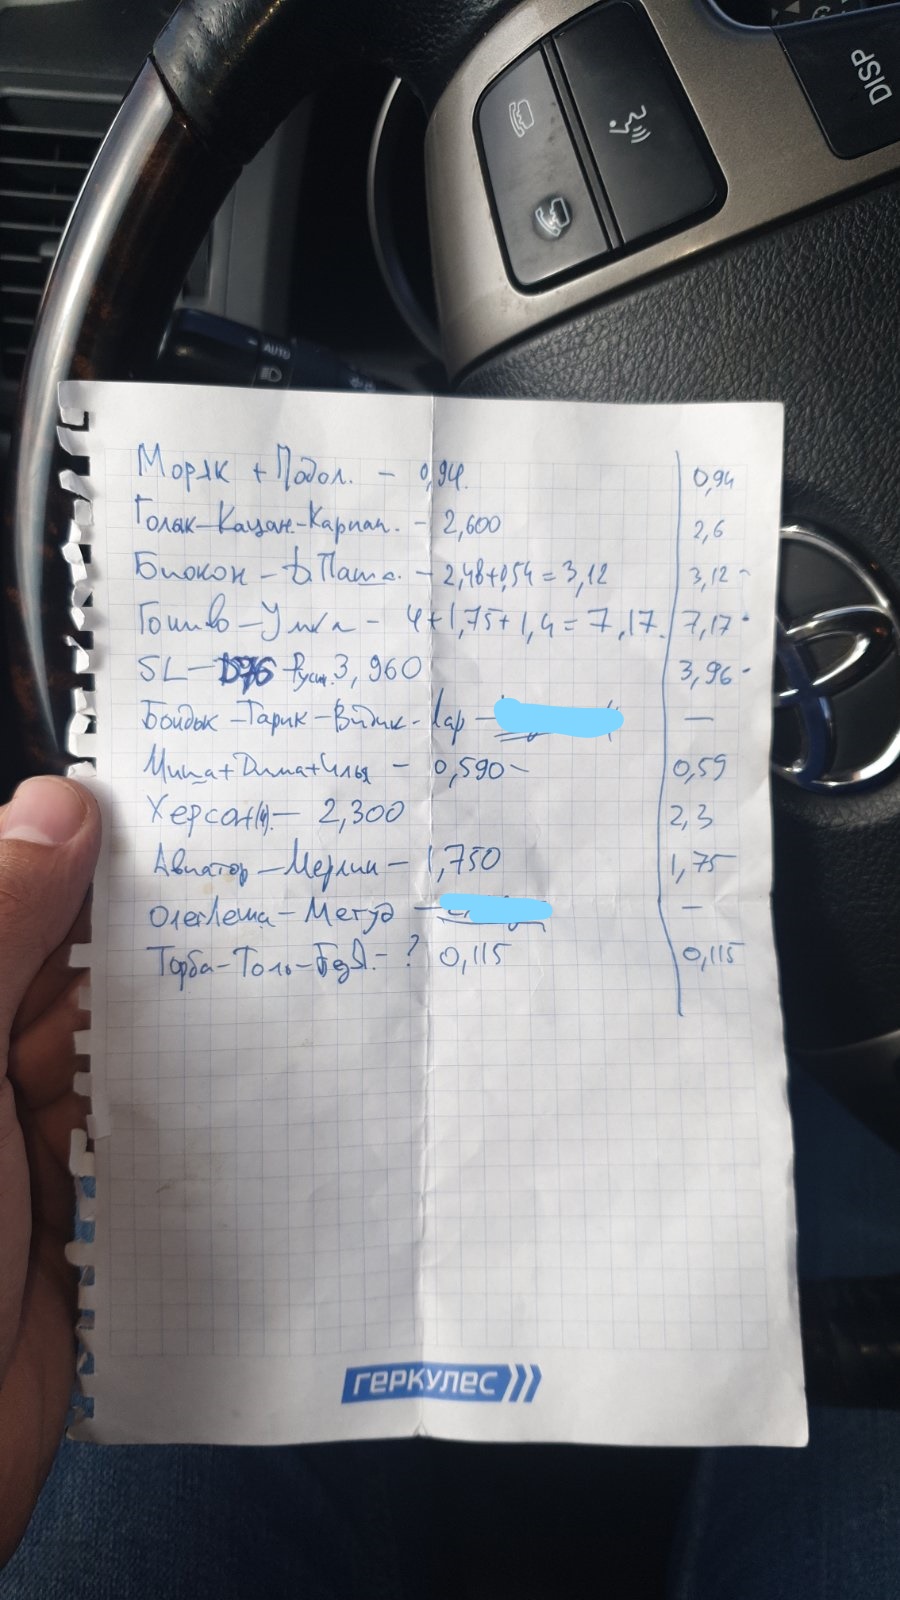 DISP
AUTO
Моряк + Подол. - 0,94. 0,94
Голяк-Кацан-Карпан. - 2,600 2,6
Биокон - Паша. - 2,48+0,54 = 3,12 3,12
Гошиво-Умка - 4+1,75+1,4 = 7,17. 7,17
SL - Руст. 3,960 3,96
Бойдык-Тарик-Вйдик-Лар - —
Миша+Дима+Илья - 0,590 - 0,59
Херсон(4). - 2,300 2,3
Авиатор-Мерлин - 1,750 1,75
ОлегЛеша-Метуд - —
Торба-Толь- - ? 0,115 0,115
ГЕРКУЛЕС